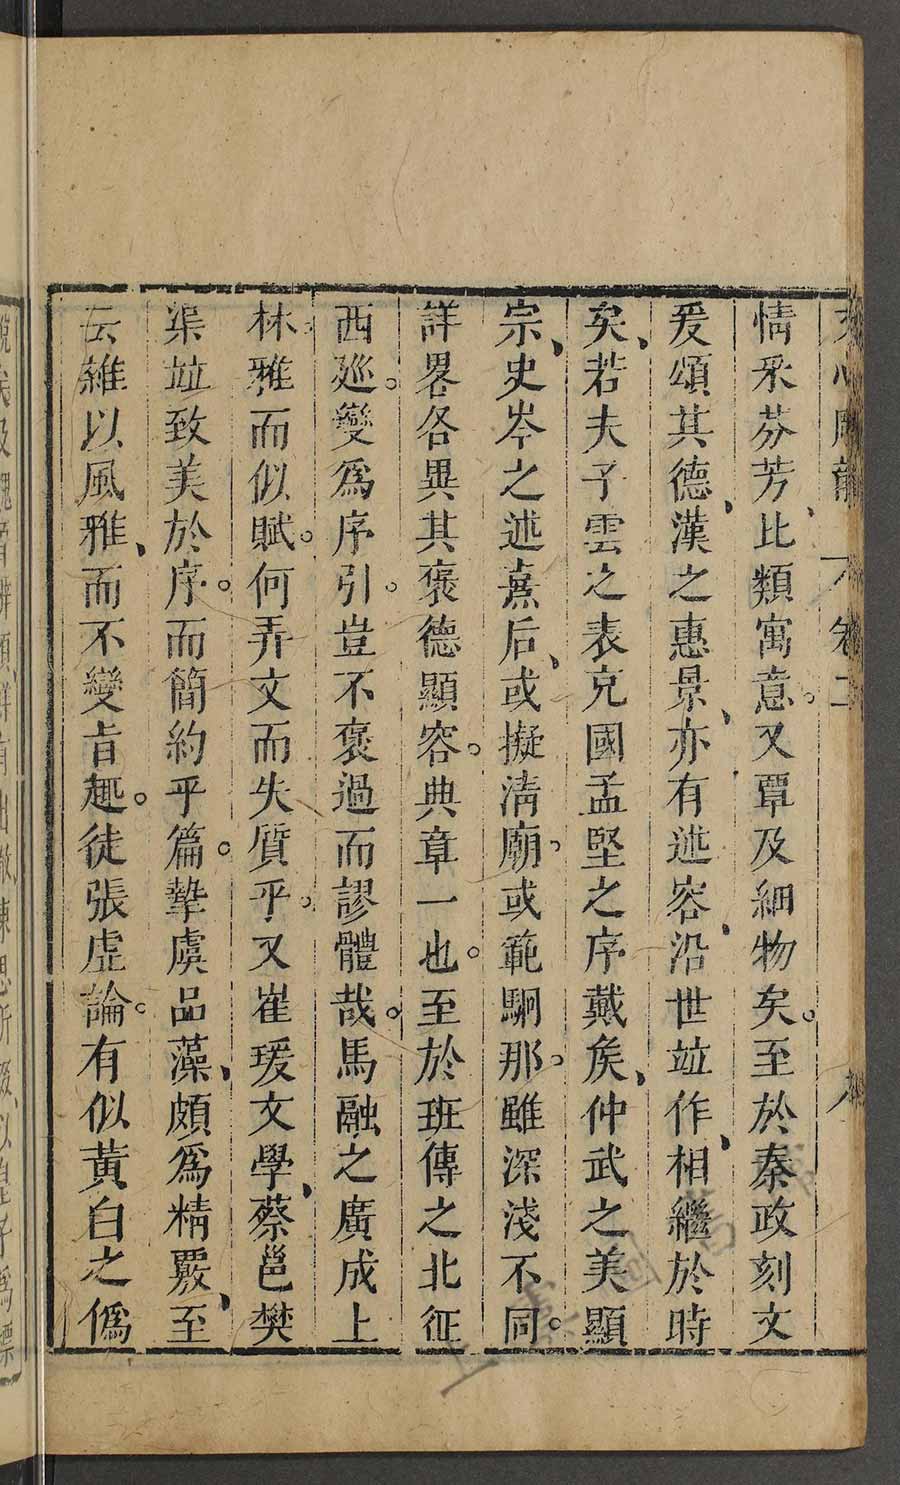 文心雕龍 卷二
情釆芬芳、比類寓意。又覃及細物矣。至於秦政刻文
爰頌其德、漢之惠景、亦有述容、沿世竝作、相繼於時
矣、若夫子雲之表充國孟堅之序戴矦、仲武之美顯
宗、史岑之述熹后、或擬清廟。或範駉那。雖深淺不同。
詳畧各異其褒德顯容。典章一也。至於班傳之北征
西廵。變爲序引。豈不褒過而謬體哉。馬融之廣成上
林。雅而似賦。何弄文而失質乎。又崔瑗文學、蔡邕樊
渠竝致美於序。而簡約乎篇。摯虞品藻、頗爲精覈、至
云雜以風雅、而不變旨趣。徒張虛論。有似黃白之僞